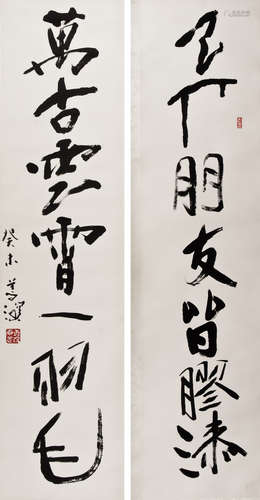 天下朋友皆膠漆
萬古雲霄一羽毛
癸未